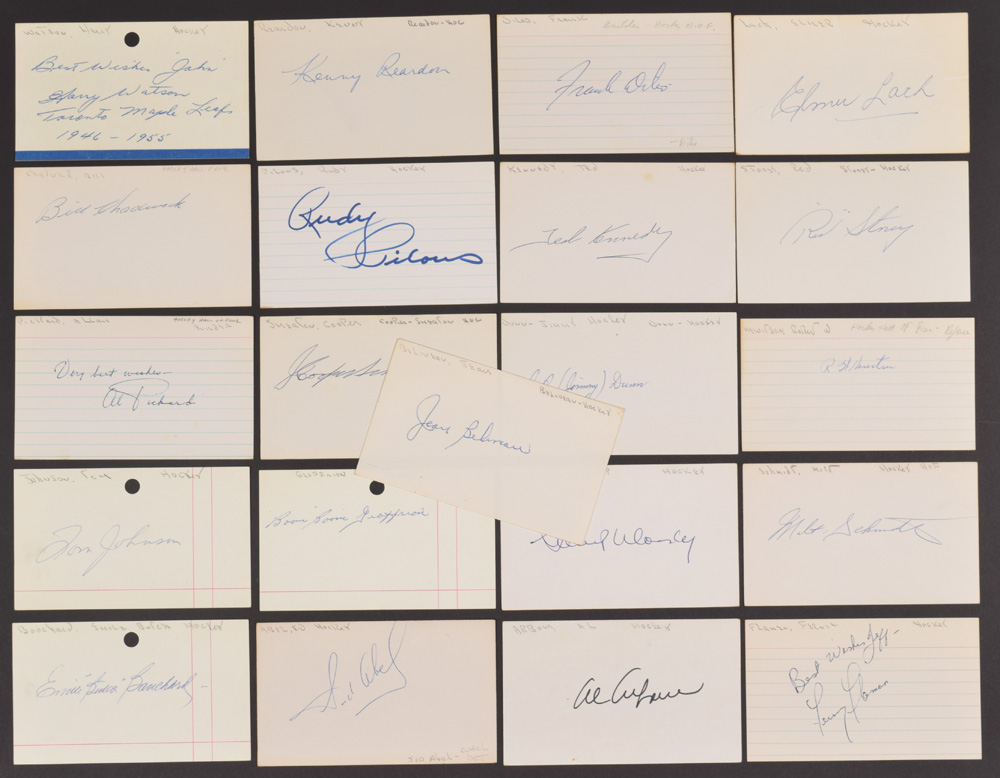 Watson, Harry Hockey
Best Wishes "John"
Harry Watson
Toronto Maple Leafs
1946 - 1955
Reardon, Kenny Reardon-HOC
Kenny Reardon
Dilio, Frank Builder - Hockey H.O.F.
Frank Dilio
Lach, Elmer Hockey
Elmer Lach
Bill
Bill Chadwick
Pilous, Rudy Hockey
Rudy Pilous
Kennedy, Ted Hockey
Ted Kennedy
Storey, Red Storey-Hockey
"Red" Storey
Pickard, Allan
Very best wishes -
Al Pickard
Smeaton, Cooper Cooper-Smeaton HOC
J Cooper
Dunn - Jimmy Hockey Dunn - Hockey
(Jimmy) Dunn
Beliveau, Jean
Beliveau-Hockey
Jean Beliveau
Johnson, Tom Hockey
Tom Johnson
Geoffrion
"Boom Boom" Geoffrion
Hockey
Schmidt, Milt Hockey HOF
Milt Schmidt
Bouchard, Emile Butch Hockey
Emile "Butch" Bouchard
Abel, Sid Hockey
Sid Abel
Sid Abel -
Arbour, Al Hockey
Al Arbour
Hockey
Best Wishes Jeff -